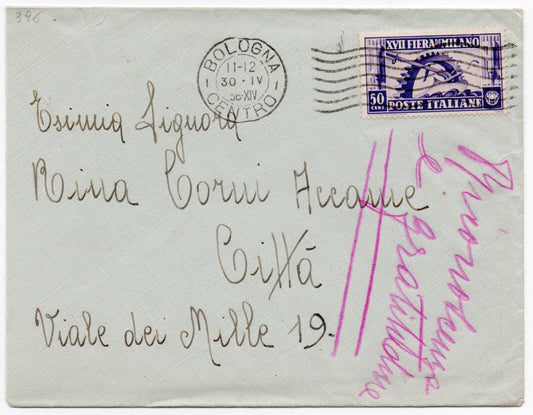 396
BOLOGNA
11-12
30·IV
36·XIV
CENTRO
XVII FIERA DI MILANO
50
CENT
POSTE ITALIANE
Esimia Signora
Rina Corni Accame
Città
Viale dei Mille 19-
Riconoscenza
e gratitudine